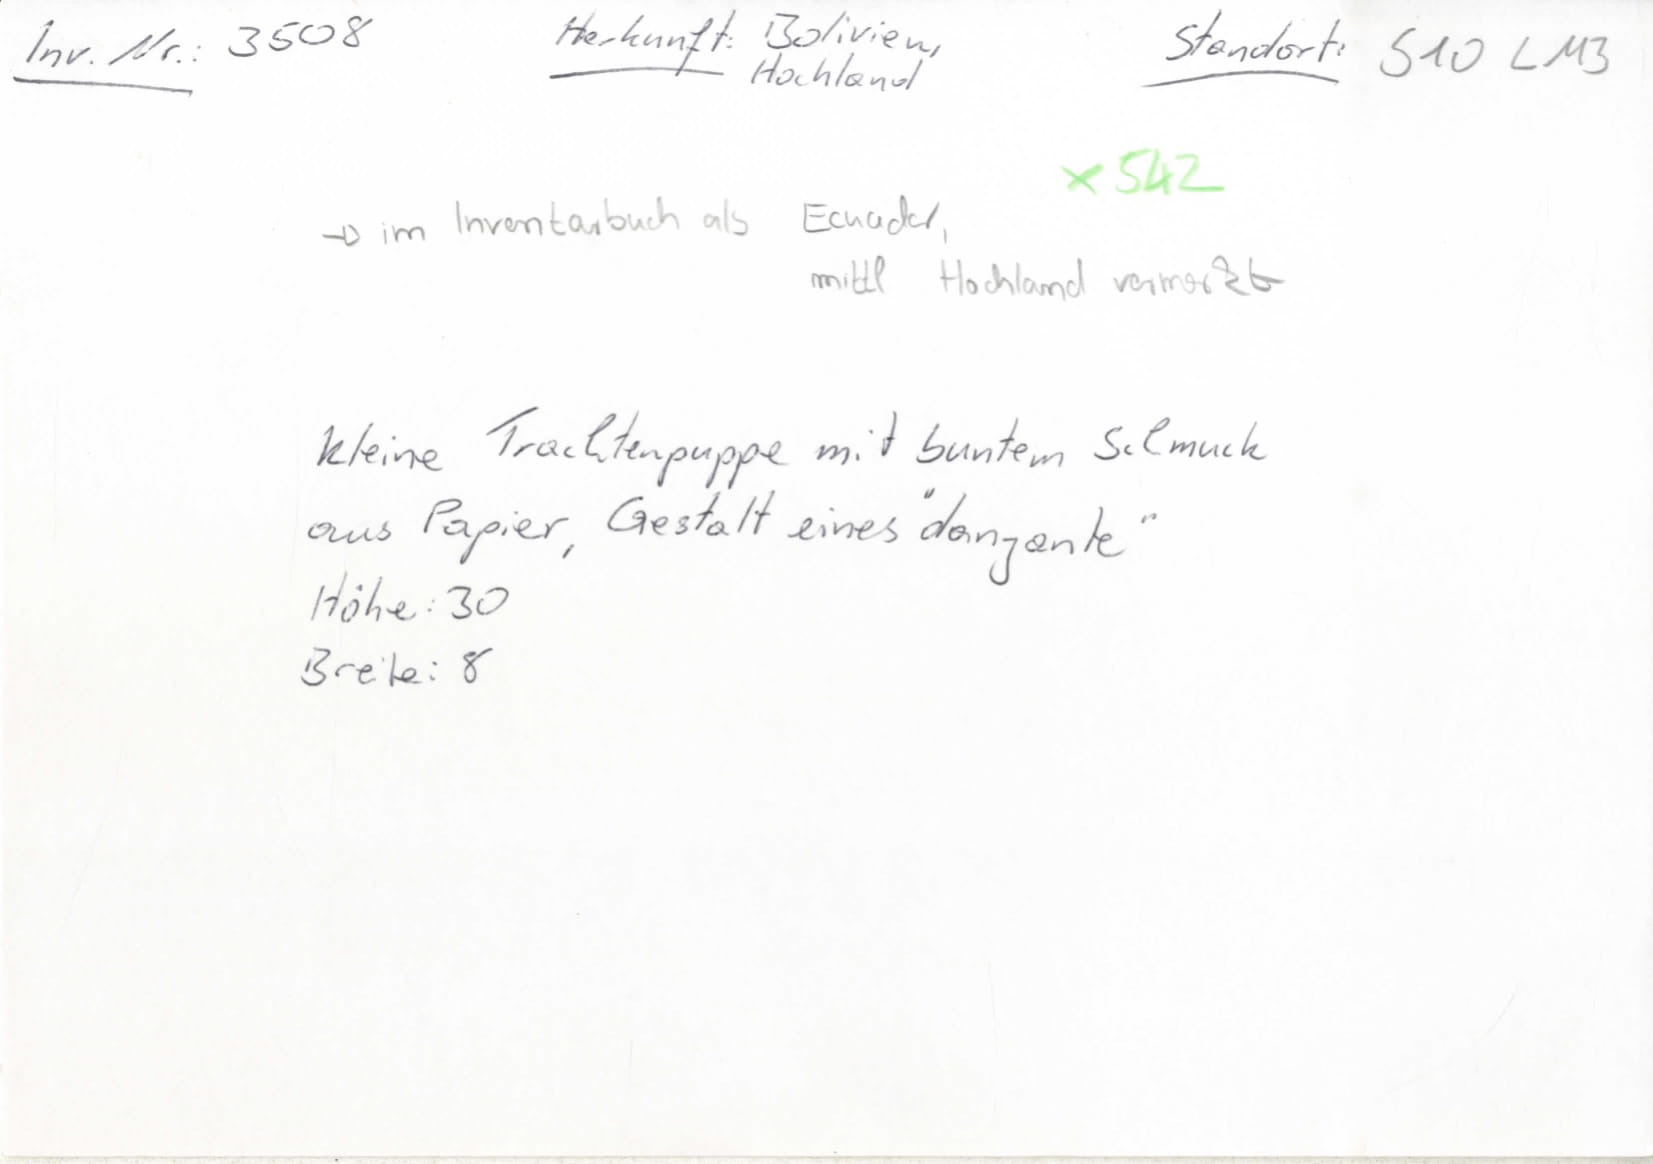 Inv. Nr.: 3508
Herkunft: Bolivien,
Hochland
Standort: S10 LM3
x 542
→ im Inventarbuch als Ecuador,
mittl Hochland vermerkt
kleine Trachtenpuppe mit buntem Schmuck
aus Papier, Gestalt eines "danzante"
Höhe: 30
Breite: 8